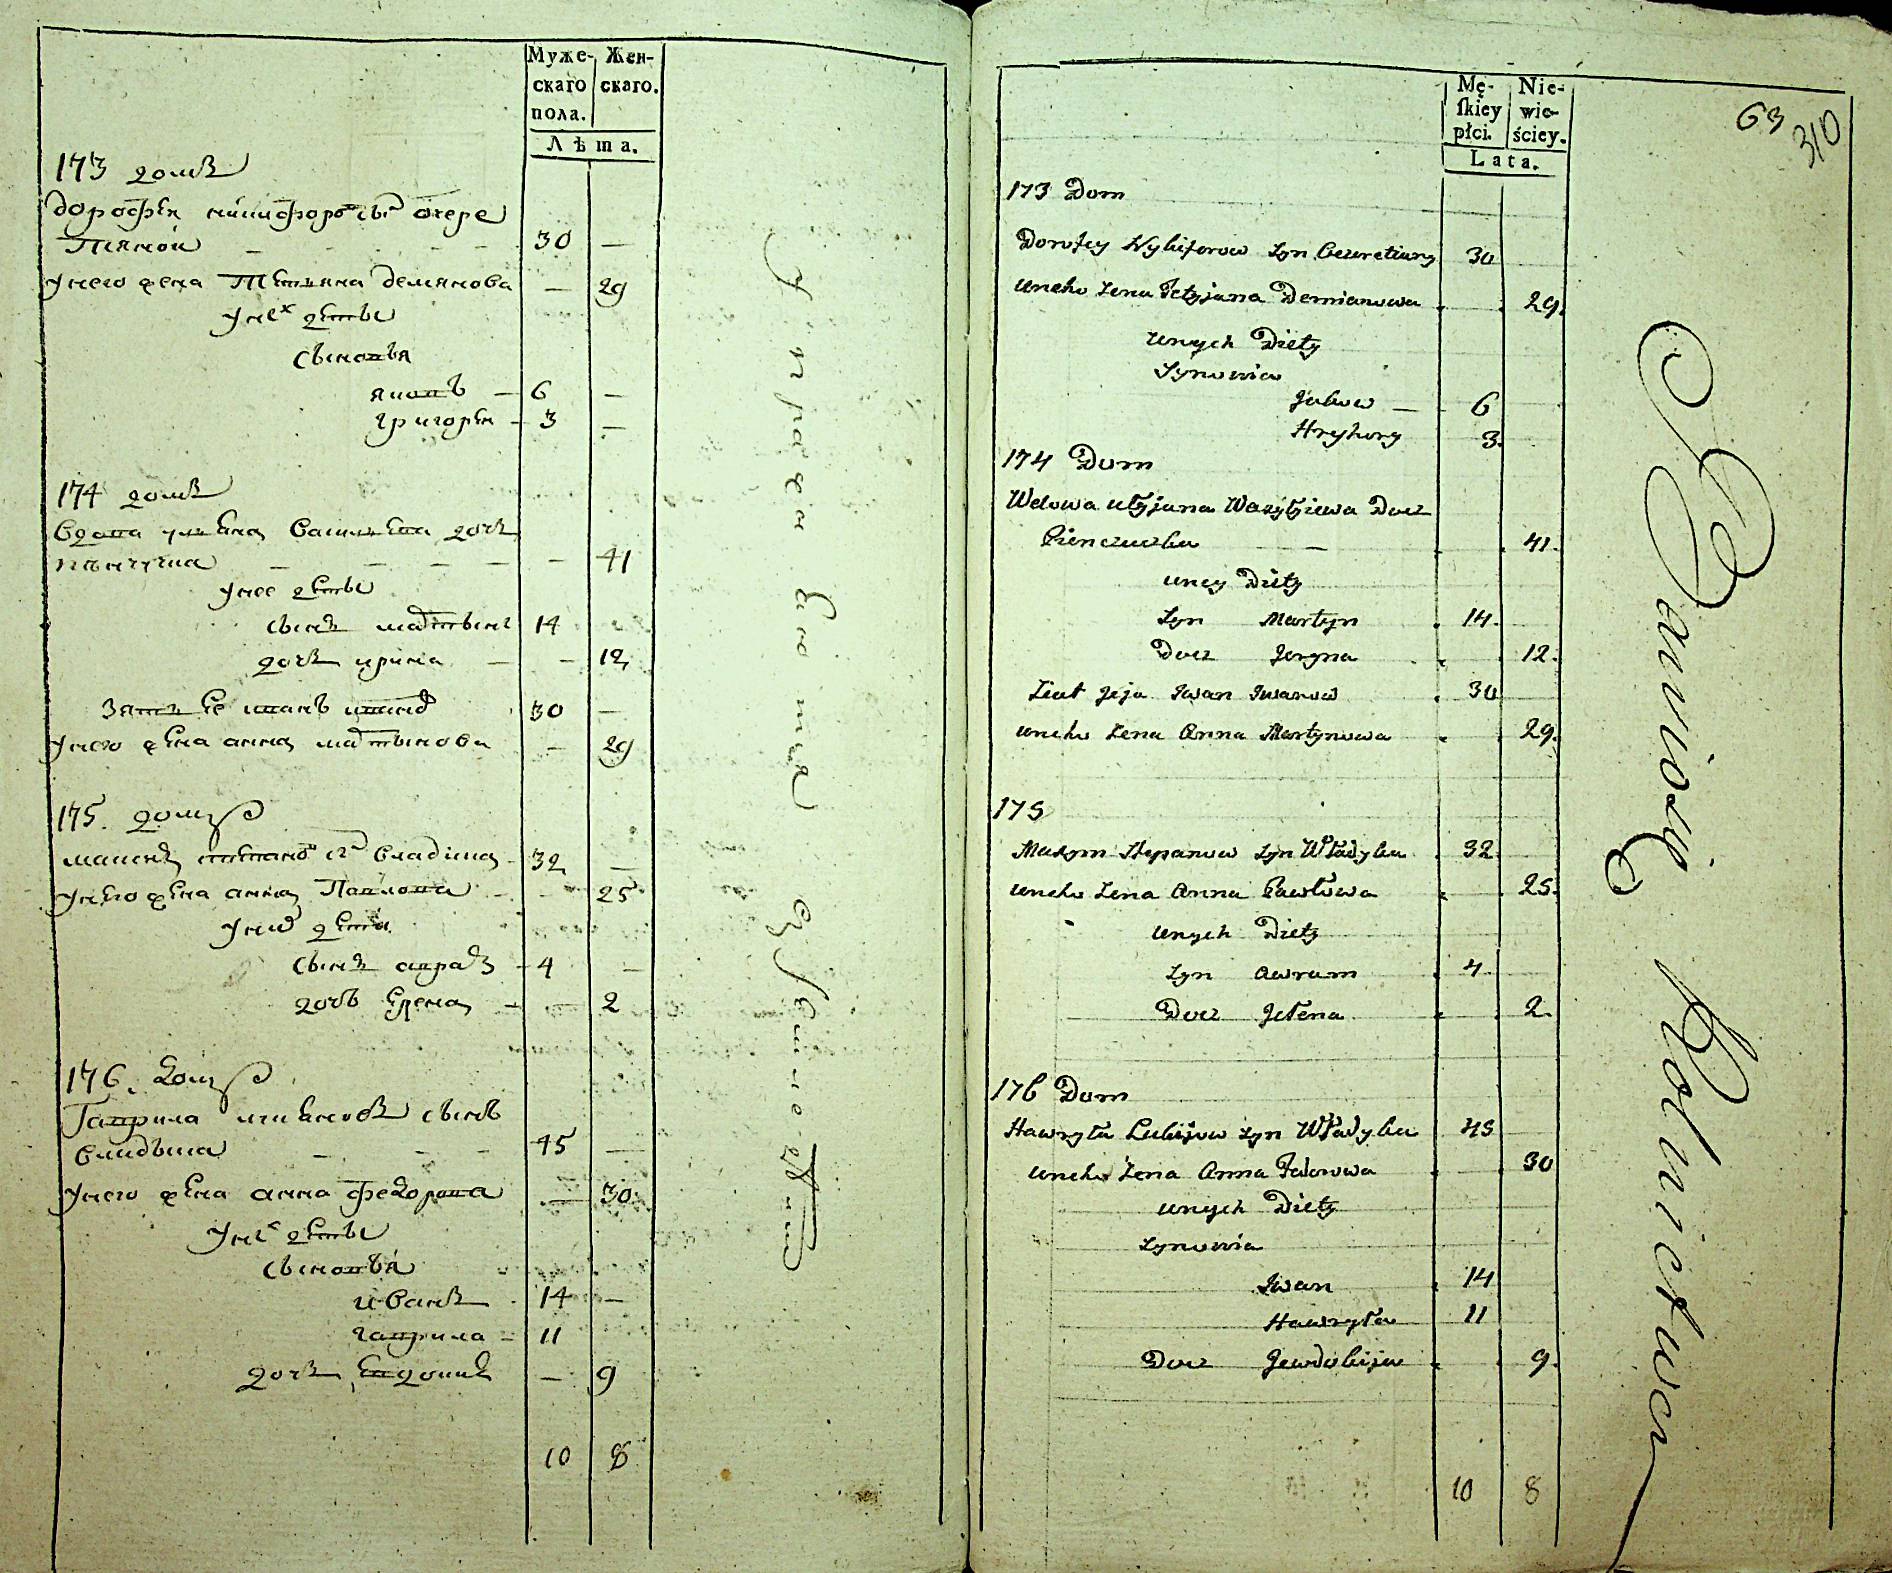 Муже- Жен-
скаго скаго.
пола.
Лѣта.
173 домъ
Дорофѣи никифоровъ сынъ очере
тяной 30 —
у него жена Тетьяна Демянова — 29
у них дѣты
сыновья
яковъ — 6 —
григорѣи — 3 —
174 домъ
вдова ульяна Василѣва дочъ
— 41
у нее дѣты
сынъ мартынъ 14
дочъ ирина — — 12
зять ее иванъ ивановъ 30 —
у него жена анна мартынова — 29
175. домъ
максимъ степановъ сынъ владика 32 —
у него жена анна Павлова — 25
у них дѣти
сынъ аврамъ — 4 —
дочь елена — — 2
176. домъ
Гаврила сынъ
владыка 45 —
у него жена анна федорова — 30
у них дѣты
сыновья
иванъ 14 —
гаврила — 11
дочъ евдокия — 9
10 8
63
310
Mę- Nie-
ſkiey wie-
płci. ściey.
Lata.
173 Dom
Dorofey Nykiforow Syn Oczeretiany 30
uneho Żena Tetyjana Demianowa 29.
unych Diety
Synowia
Jakow — 6
Hryhory 3.
174 Dom
Wdowa Ulyjana Wasylijewa Docz
— 41.
uney Diety
Syn Martyn 14.
Docz Jeryna 12.
Ziat Jeja Iwan Iwanow 30
uneho Żena Anna Martynowa 29.
175
Maksym Stepanow Syn Władyka 32
uneho Żena Anna Pawłowa 25.
unych Diety
Syn Awram 4
Docz Jelena 2.
176 Dom
Hawryła Syn Władyka 45
uneho Żena Anna Fedorowa 30
unych Diety
Synowia
Iwan 14
Hawryła 11
Docz Jewdokija 9.
10 8